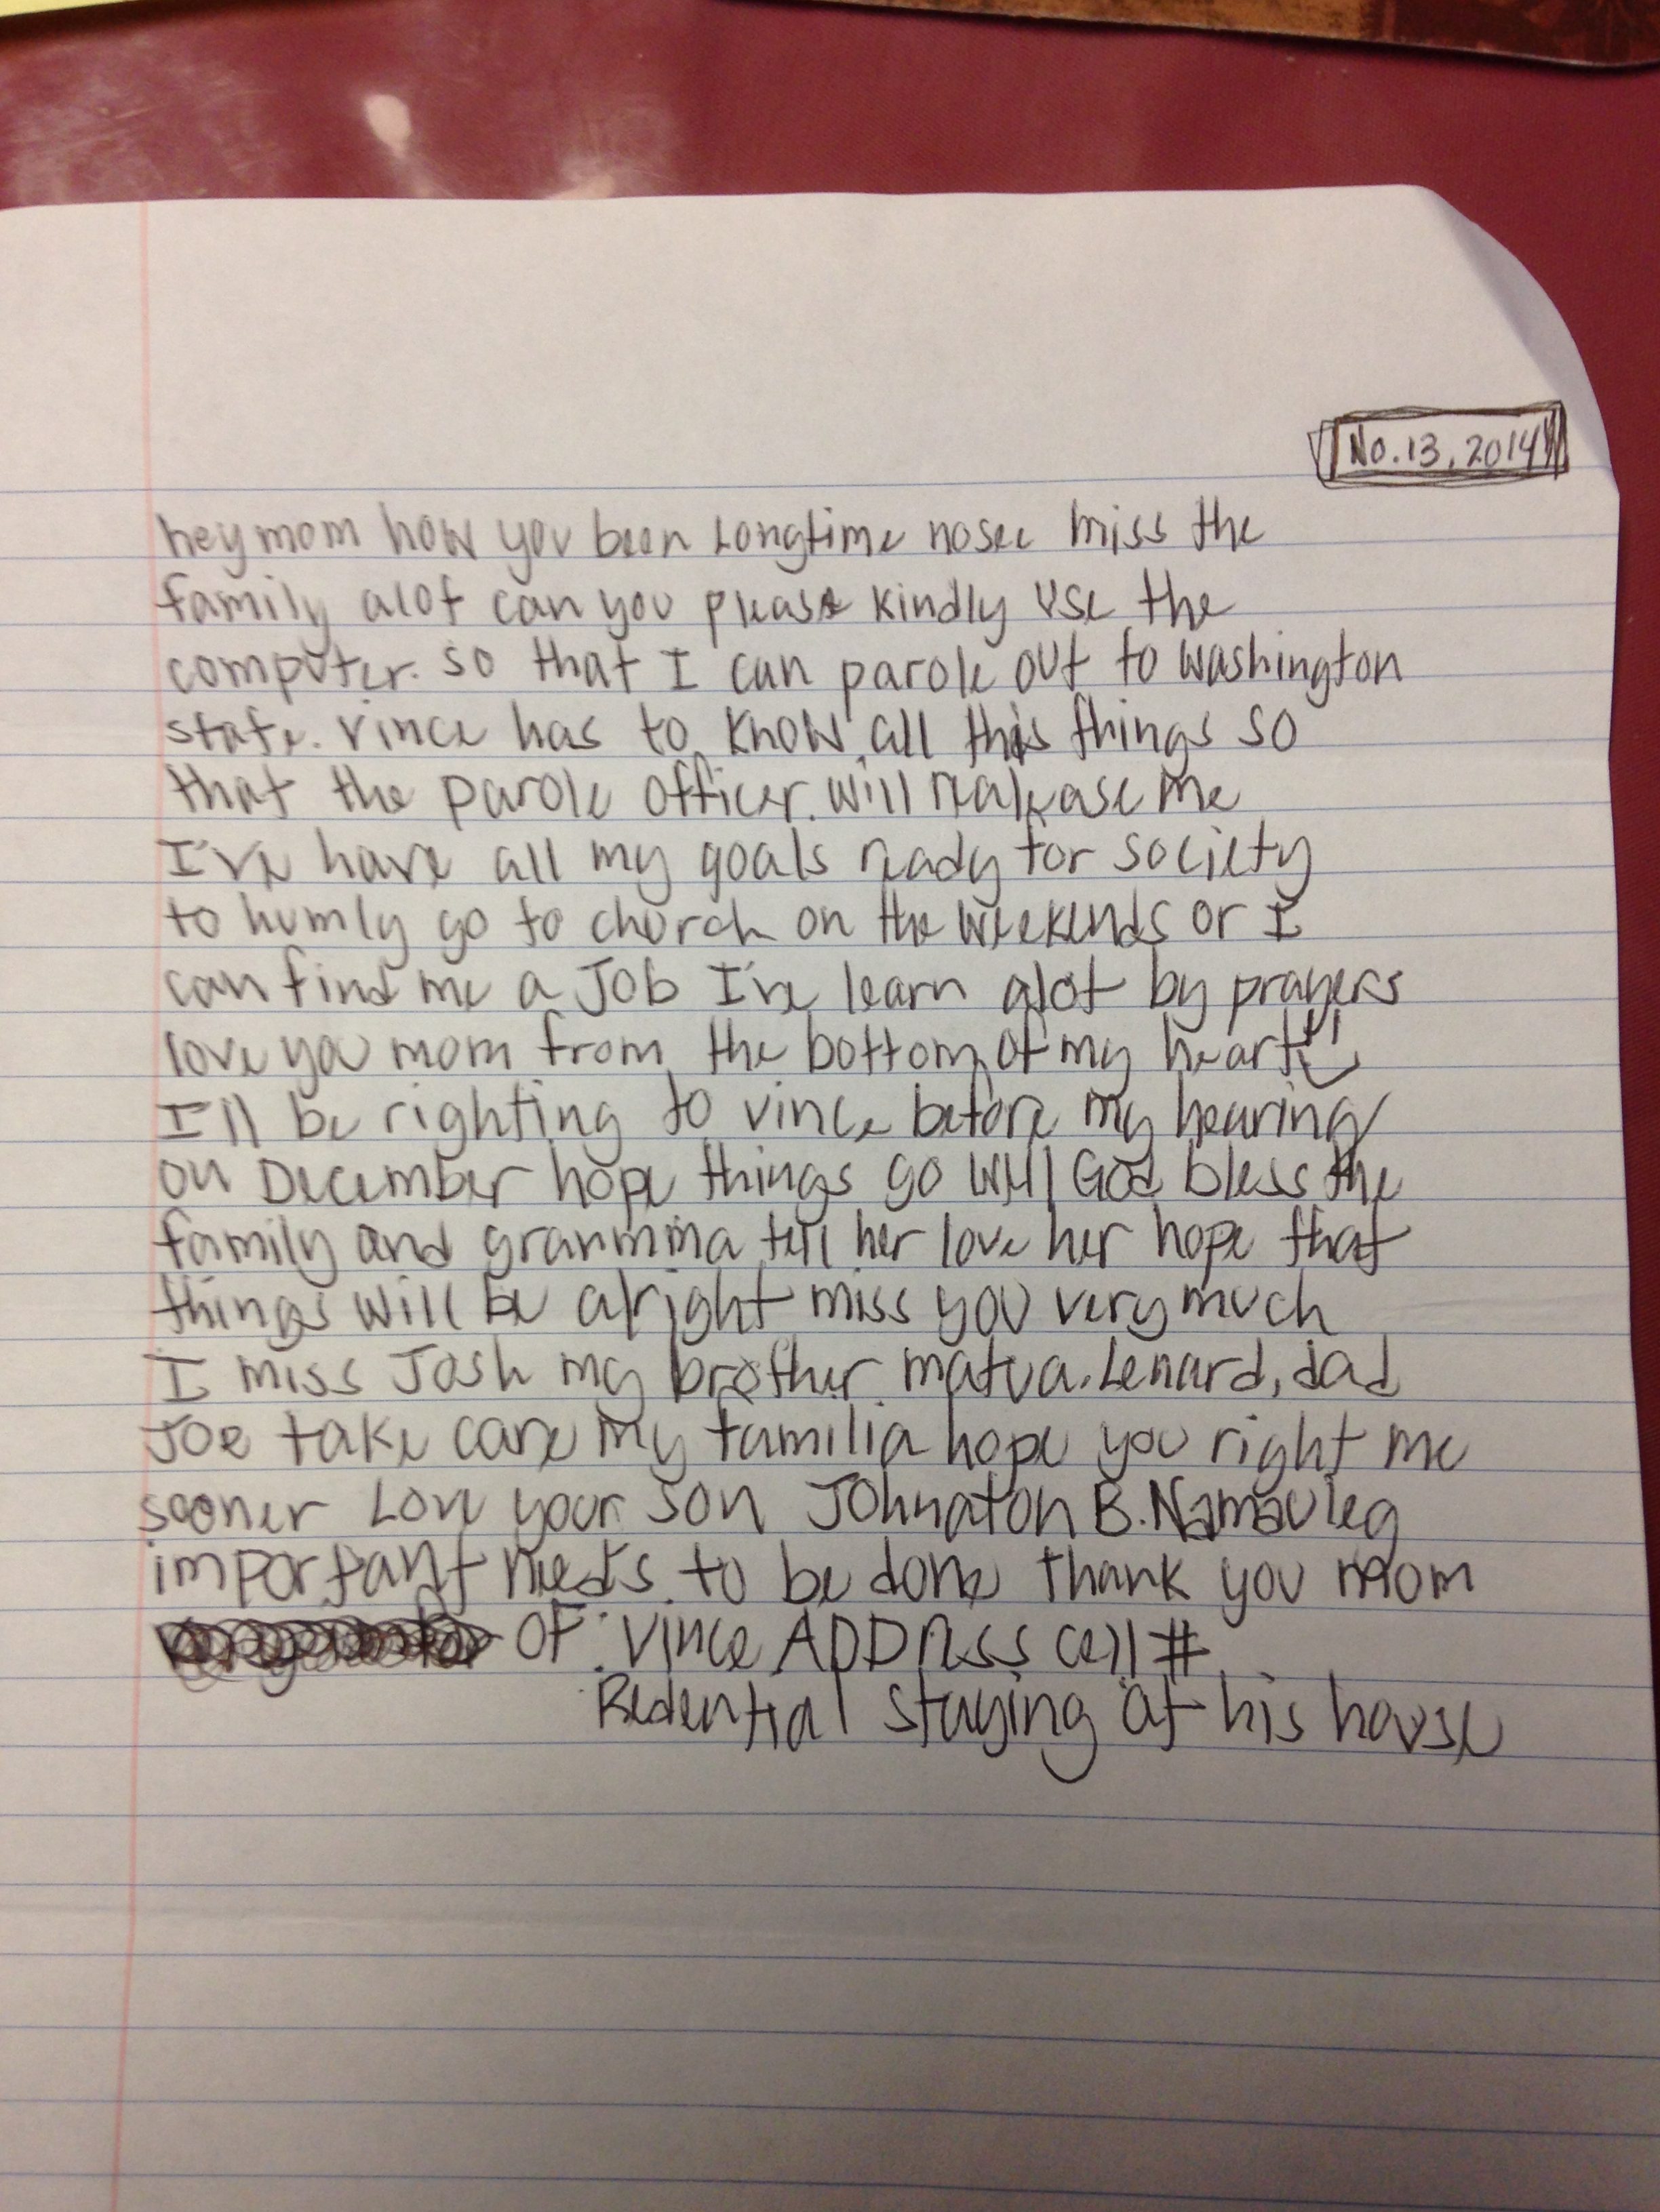 No. 13, 2014
hey mom how you been Longtime nosee miss the
family alot can you please kindly use the
computer. so that I can parole out to washington
state. vince has to know all this things so
that the parole officer. will realease me
I've have all my goals ready for society
to humly go to church on the weekends or I
can find me a Job I've learn alot by prayers
love you mom from the bottom of my heart!!
I'll be righting to vince before my hearing
on December hope things go well God bless the
family and granmma tell her love her hope that
things will be alright miss you very much
I miss Josh my brother matua. Lenard, dad
Joe take care my familia hope you right me
sooner Love your son Johnaton B. Namauleg
important needs to be done thank you mom
OF: Vince ADDress cell #
Redential staying at his house